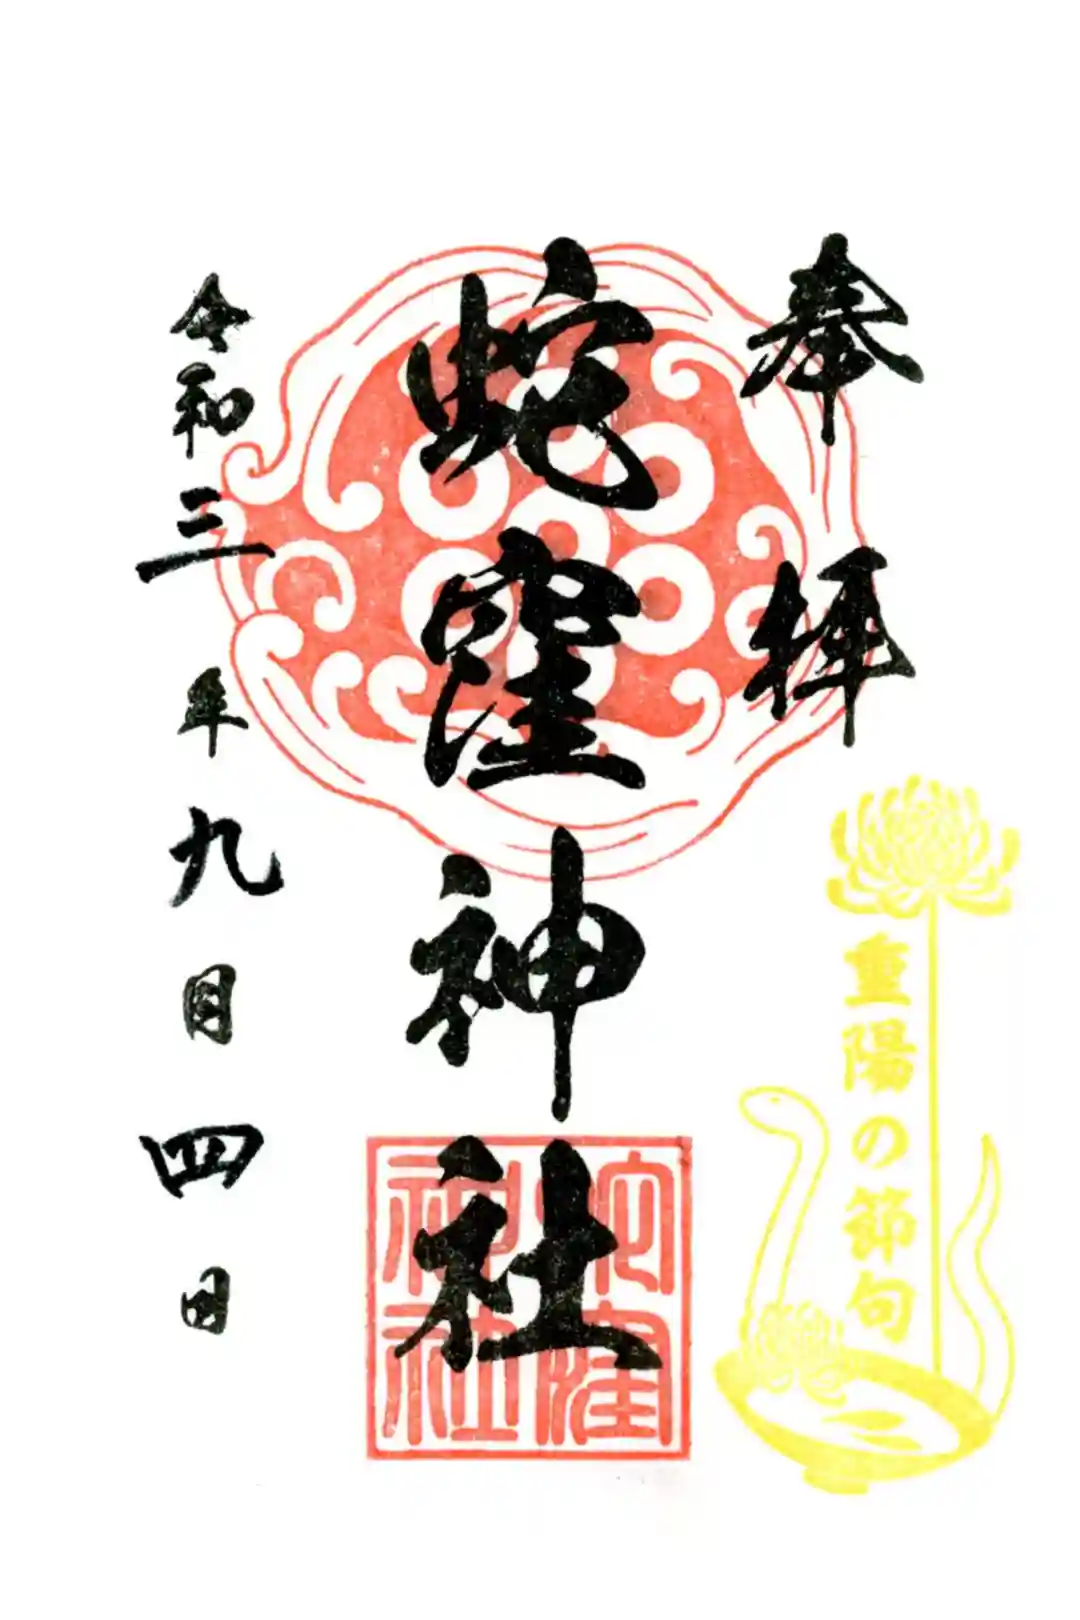 奉拝
蛇窪神社
令和三年九月四日
重陽の節句
蛇窪
神社